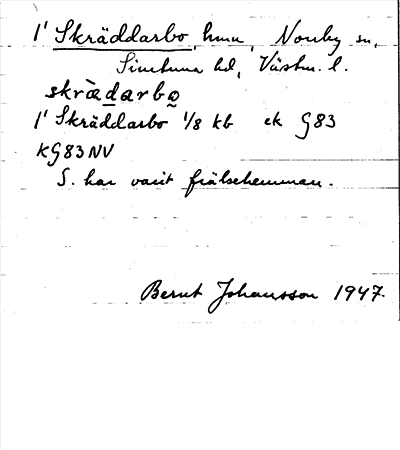 1' Skräddarbo, hmn, Norrby sn,
Simtuna hd, Västm. l.
skrä̀darbo̰
1' Skräddarbo 1/8 kb ek G83
KG83NV
S. har varit frälsehemman.
Bernt Johansson 1947.